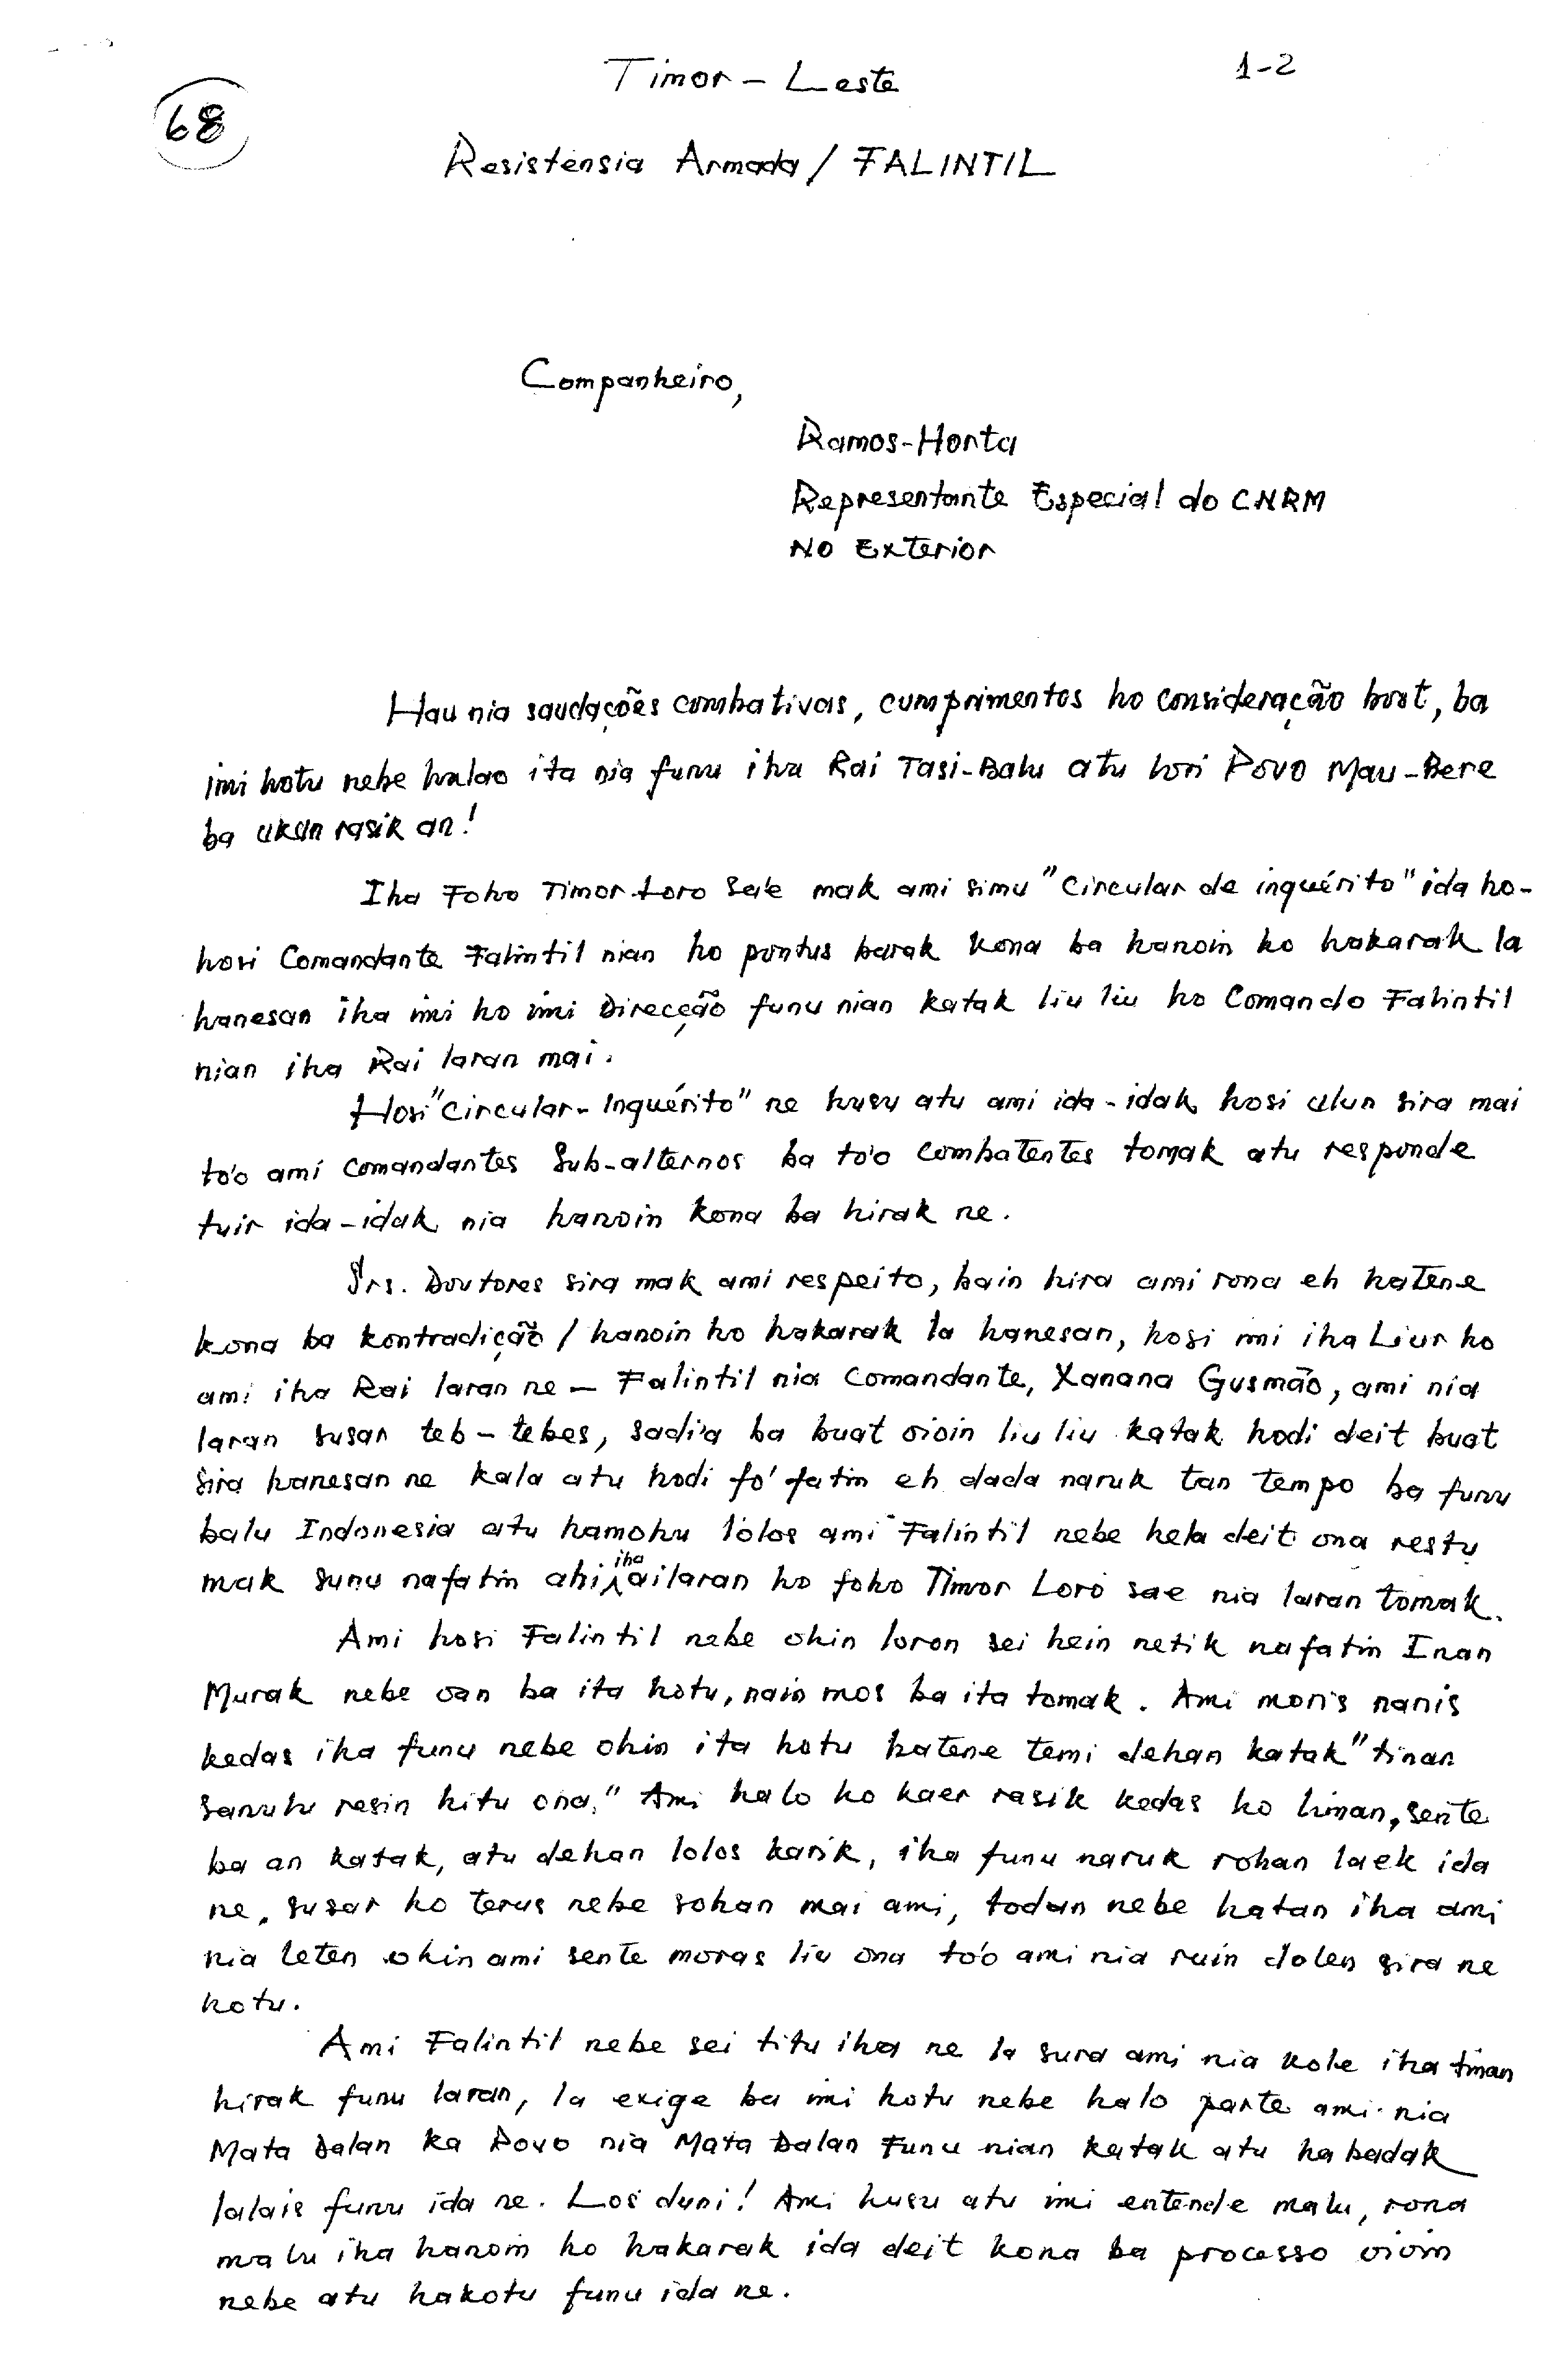 1-2
Timor - Leste
68
Resistensia Armada / FALINTIL
Companheiro,
Ramos-Horta
Representante Especial do CNRM
No Exterior
Hau nia saudações combativas, cumprimentos ho consideração boot, ba
imi hotu nebe halao ita nia funu iha Rai Tasi-Balu atu lori Povo Mau-Bere
ba ukun rasik an!
Iha Foho Timor Loro Sa'e mak ami simu "Circular de inquérito" ida ho-
hosi Comandante Falintil nian ho pontus barak kona ba hanoin ho hakarak la
hanesan iha imi ho imi Direcção funu nian katak liu liu ho Comando Falintil
nian iha Rai laran mai.
Hosi "Circular-Inquérito" ne husu atu ami ida-idak hosi ulun sira mai
to'o ami comandantes Sub-alternos ba to'o combatentes tomak atu responde
tuir ida-idak nia hanoin kona ba hirak ne.
Srs. Doutores sira mak ami respeito, bain hira ami rona eh hatene
kona ba kontradição / hanoin ho hakarak la hanesan, hosi imi iha Liur ho
ami iha Rai laran ne - Falintil nia Comandante, Xanana Gusmão, ami nia
laran susar teb-tebes, sadi'a ba buat oioin liu liu katak hodi deit buat
sira hanesan ne kala atu hodi fo' fatin eh dada naruk tan tempo ba funu
balu Indonesia atu hamohu lolos ami Falintil nebe hela deit ona restu
mak sunu nafatin ahi iha ailaran ho foho Timor Loro sae nia laran tomak.
Ami hosi Falintil nebe ohin loron sei hein netik nafatin Inan
Murak nebe oan ba ita hotu, nain mos ba ita tomak. Ami moris nanis
kedas iha funu nebe ohin ita hotu hatene temi dehan katak "tinan
sanulu resin hitu ona." Ami halo ho kaer rasik kedas ho liman, sente
ba an katak, atu dehan lolos karik, iha funu naruk rohan laek ida
ne, susar ho terus nebe sohan mai ami, todan nebe hatan iha ami
nia leten ohin ami sente moras liu ona to'o ami nia ruin dolen sira ne
hotu.
Ami Falintil nebe sei titu iha ne la sura ami nia kole iha tinan
hirak funu laran, la exige ba imi hotu nebe halo parte ami nia
Mata Dalan ka Povo nia Mata Dalan Funu nian katak atu habadak
lalais funu ida ne. Los duni! Ami husu atu imi entende malu, rona
malu iha hanoin ho hakarak ida deit kona ba processo oioin
nebe atu hakotu funu ida ne.